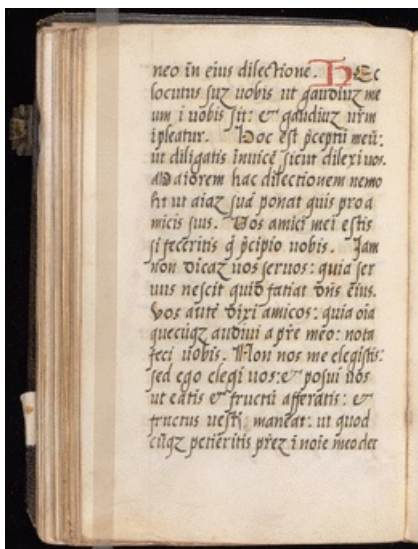 neo in eius dilectione. Hec
locutus suz uobis ut gaudiuz me
um i uobis sit: & gaudiuz urm̄
ipleatur. Hoc est p̄ceptū meū:
ut diligatis inuicē sicut dilexi uos.
Maiorem hac dilectionem nemo
ht ut aīaz suā ponat quis pro a
micis suis. Vos amici mei estis
si feceritis q̄ p̄cipio uobis. Jam
non dicaz uos seruos: quia ser
uus nescit quid fatiat dn̄s eius.
Vos autē dixi amicos: quia oīa
quecūqz audiui a pr̄e meo: nota
feci uobis. Non uos me elegistis:
sed ego elegi uos: & posui uos
ut eatis & fructū afferatis: &
fructus uestr̄ maneat: ut quod
cūqz petieritis pr̄ez i noīe meo det